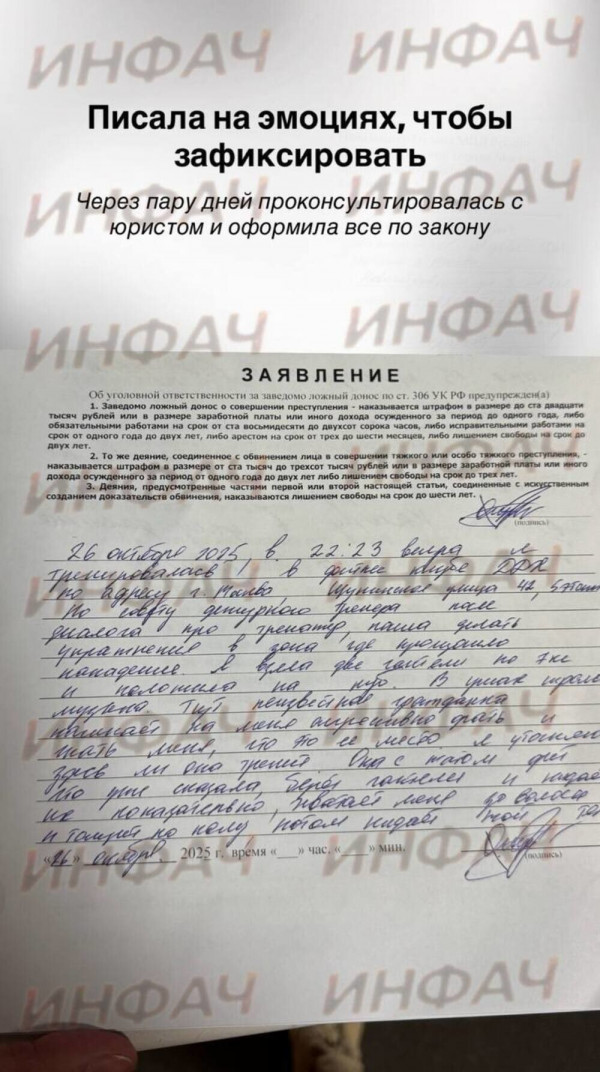 ИНФАЧ ИНФАЧ
Писала на эмоциях, чтобы
зафиксировать
ИНФАЧ ИНФАЧ
Через пару дней проконсультировалась с
юристом и оформила все по закону
ИНФАЧ ИНФАЧ
ЗАЯВЛЕНИЕ
Об уголовной ответственности за заведомо ложный донос по ст. 306 УК РФ предупрежден(а)
1. Заведомо ложный донос о совершении преступления - наказывается штрафом в размере до ста двадцати
тысяч рублей или в размере заработной платы или иного дохода осужденного за период до одного года, либо
обязательными работами на срок от ста восьмидесяти до двухсот сорока часов, либо исправительными работами на
срок от одного года до двух лет, либо арестом на срок от трех до шести месяцев, либо лишением свободы на срок до
двух лет.
2. То же деяние, соединенное с обвинением лица в совершении тяжкого или особо тяжкого преступления, -
наказывается штрафом в размере от ста тысяч до трехсот тысяч рублей или в размере заработной платы или иного
дохода осужденного за период от одного года до двух лет либо лишением свободы на срок до трех лет.
3. Деяния, предусмотренные частями первой или второй настоящей статьи, соединенные с искусственным
созданием доказательств обвинения, наказываются лишением свободы на срок до шести лет.
(подпись)
26 октября 2025, в 22:23 вечера я
тренировалась в фитнес клубе DDX
по адресу г. Москва, улица 42, 5 этаж
По совету дежурного тренера после
диалога про тренажер, пошла делать
упражнения в зона где произошло
нападение. Я взяла две гантели по 7 кг
и положила на пол. В ушах играла
музыка. Тут неизвестная гражданка
начинает на меня агрессивно орать и
гнать меня, что это ее место я уточняю
здесь ли она тренит Она с матом
что уже сказала, берет гантели и кидает
их показательно, хватает меня за волосы
и по полу потом кидает
«26» октября 2025 г. время «___» час. «___» мин.
(подпись)
ИНФАЧ ИНФАЧ
ИНФАЧ ИНФАЧ
ИНФАЧ ИНФАЧ